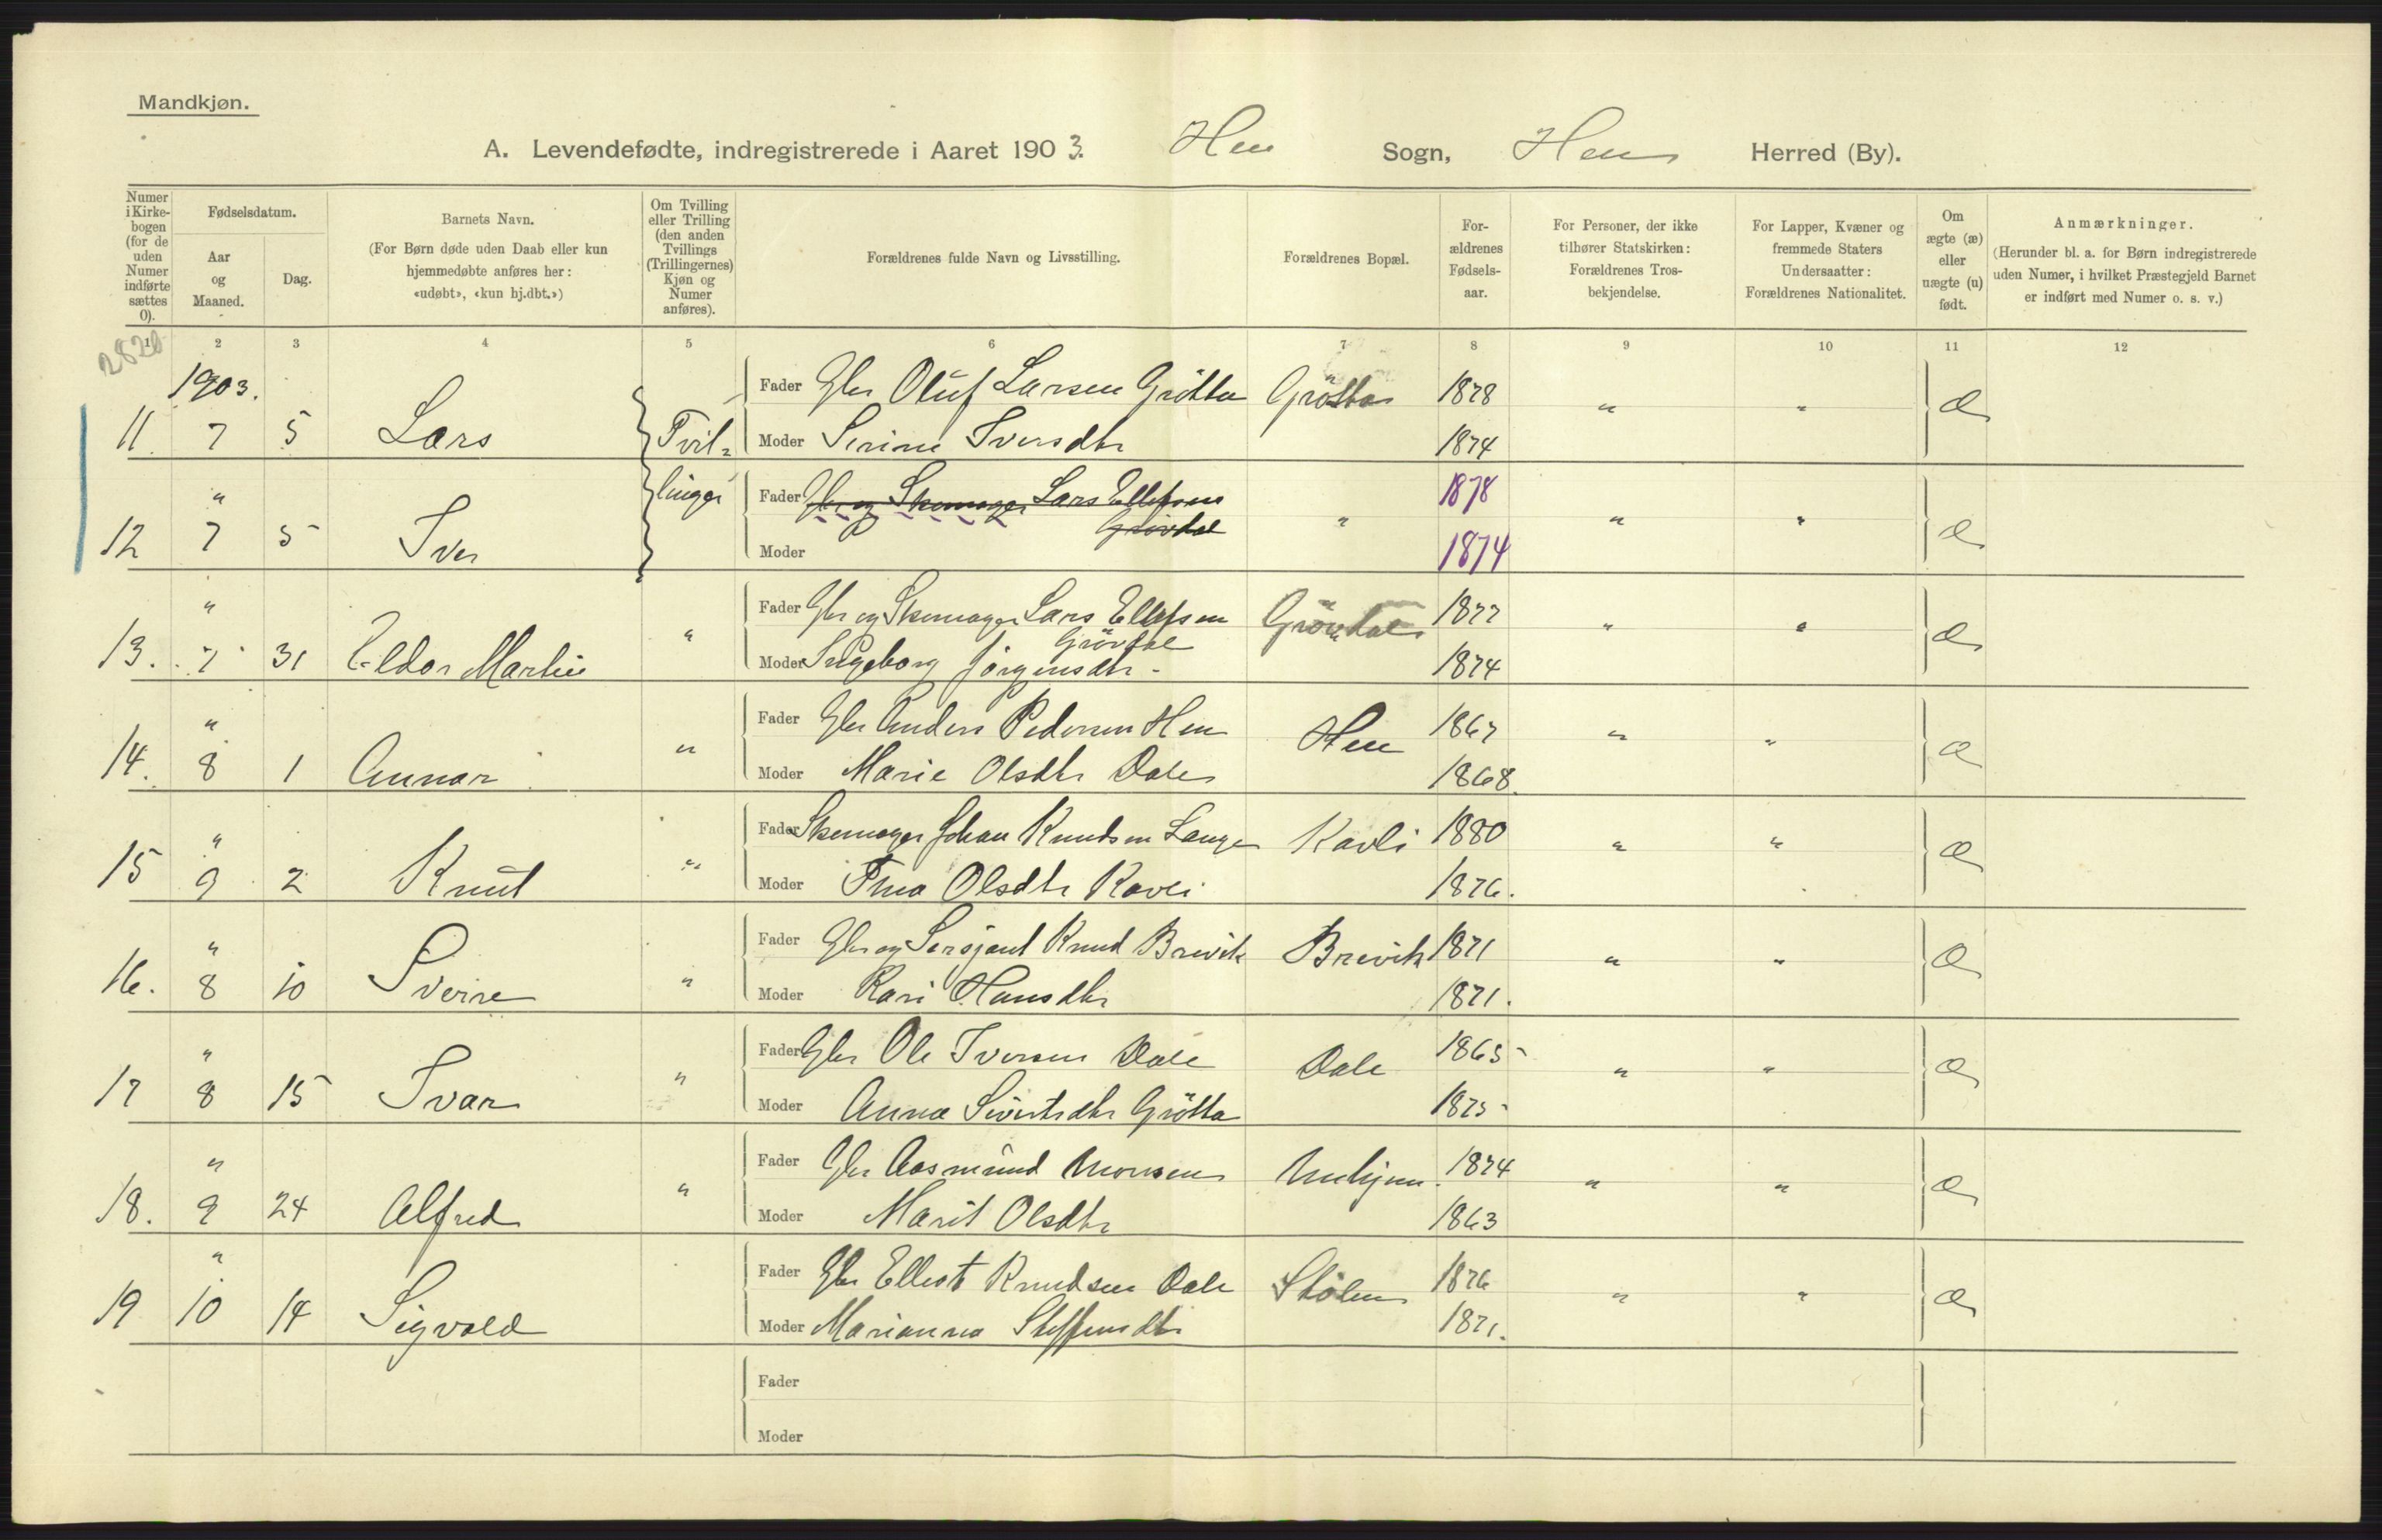 Mandkjøn.
A. Levendefødte, indregistrerede i Aaret 1903. Hen Sogn, Hen Herred (By).
Numer i Kirkebogen (for de uden Numer indførte sættes 0).
Fødselsdatum.
Aar og Maaned.
Dag.
Barnets Navn.
(For Børn døde uden Daab eller kun hjemmedøbte anføres her: «udøbt», «kun hj.dbt.»)
Om Tvilling eller Trilling (den anden Tvillings (Trillingernes) Kjøn og Numer anføres).
Forældrenes fulde Navn og Livsstilling.
Forældrenes Bopæl.
Forældrenes Fødselsaar.
For Personer, der ikke tilhører Statskirken: Forældrenes Trosbekjendelse.
For Lapper, Kvæner og fremmede Staters Undersaatter: Forældrenes Nationalitet.
Om ægte (æ) eller uægte (u) født.
Anmærkninger.
(Herunder bl. a. for Børn indregistrerede uden Numer, i hvilket Præstegjeld Barnet er indført med Numer o. s. v.)
1 2 3 4 5 6 7 8 9 10 11 12
1903.
Fader Gbr Oluf Larsen Grötta Grötta 1878 " " æ
11. 7 5 Lars Tvil- Moder Serine Iversdtr 1874
" linger Fader Gbr og Skomager Lars Ellefsen Grövdal " 1878 " " æ
12 7 5 Iver Moder 1874
" Fader Gbr og Skomager Lars Ellefsen Grövdal Grövdal 1877 " " æ
13. 7 31 Eldor Martin " Moder Ingeborg Jörgensdtr - 1874
" Fader Gbr Anders Pedersen Hen Hen 1867 " " æ
14. 8 1 Annar " Moder Marie Olsdtr Dale 1868.
" Fader Skomager Johan Knudsen Lange Kavli 1880 " " æ
15 9 2 Knut " Moder Olsdtr Kavli 1876.
" Fader Gbr og Sersjant Knud Brevik Brevik 1871 " " æ
16. 8 10 Sverre " Moder Kari Hansdtr 1871.
" Fader Gbr Ole Iversen Dale Dale 1865 " " æ
17 8 15 Ivar " Moder Anna Sivertsdtr Grötta 1875
" Fader Gbr Aasmund Monsen Unhjem 1874 " " æ
18. 9 24 Alfred " Moder Marit Olsdtr 1863
" Fader Gbr Knudsen Dale Stölen 1876 " " æ
19 10 14 Sigvald Moder Marianna Steffensdtr 1871.
Fader
Moder